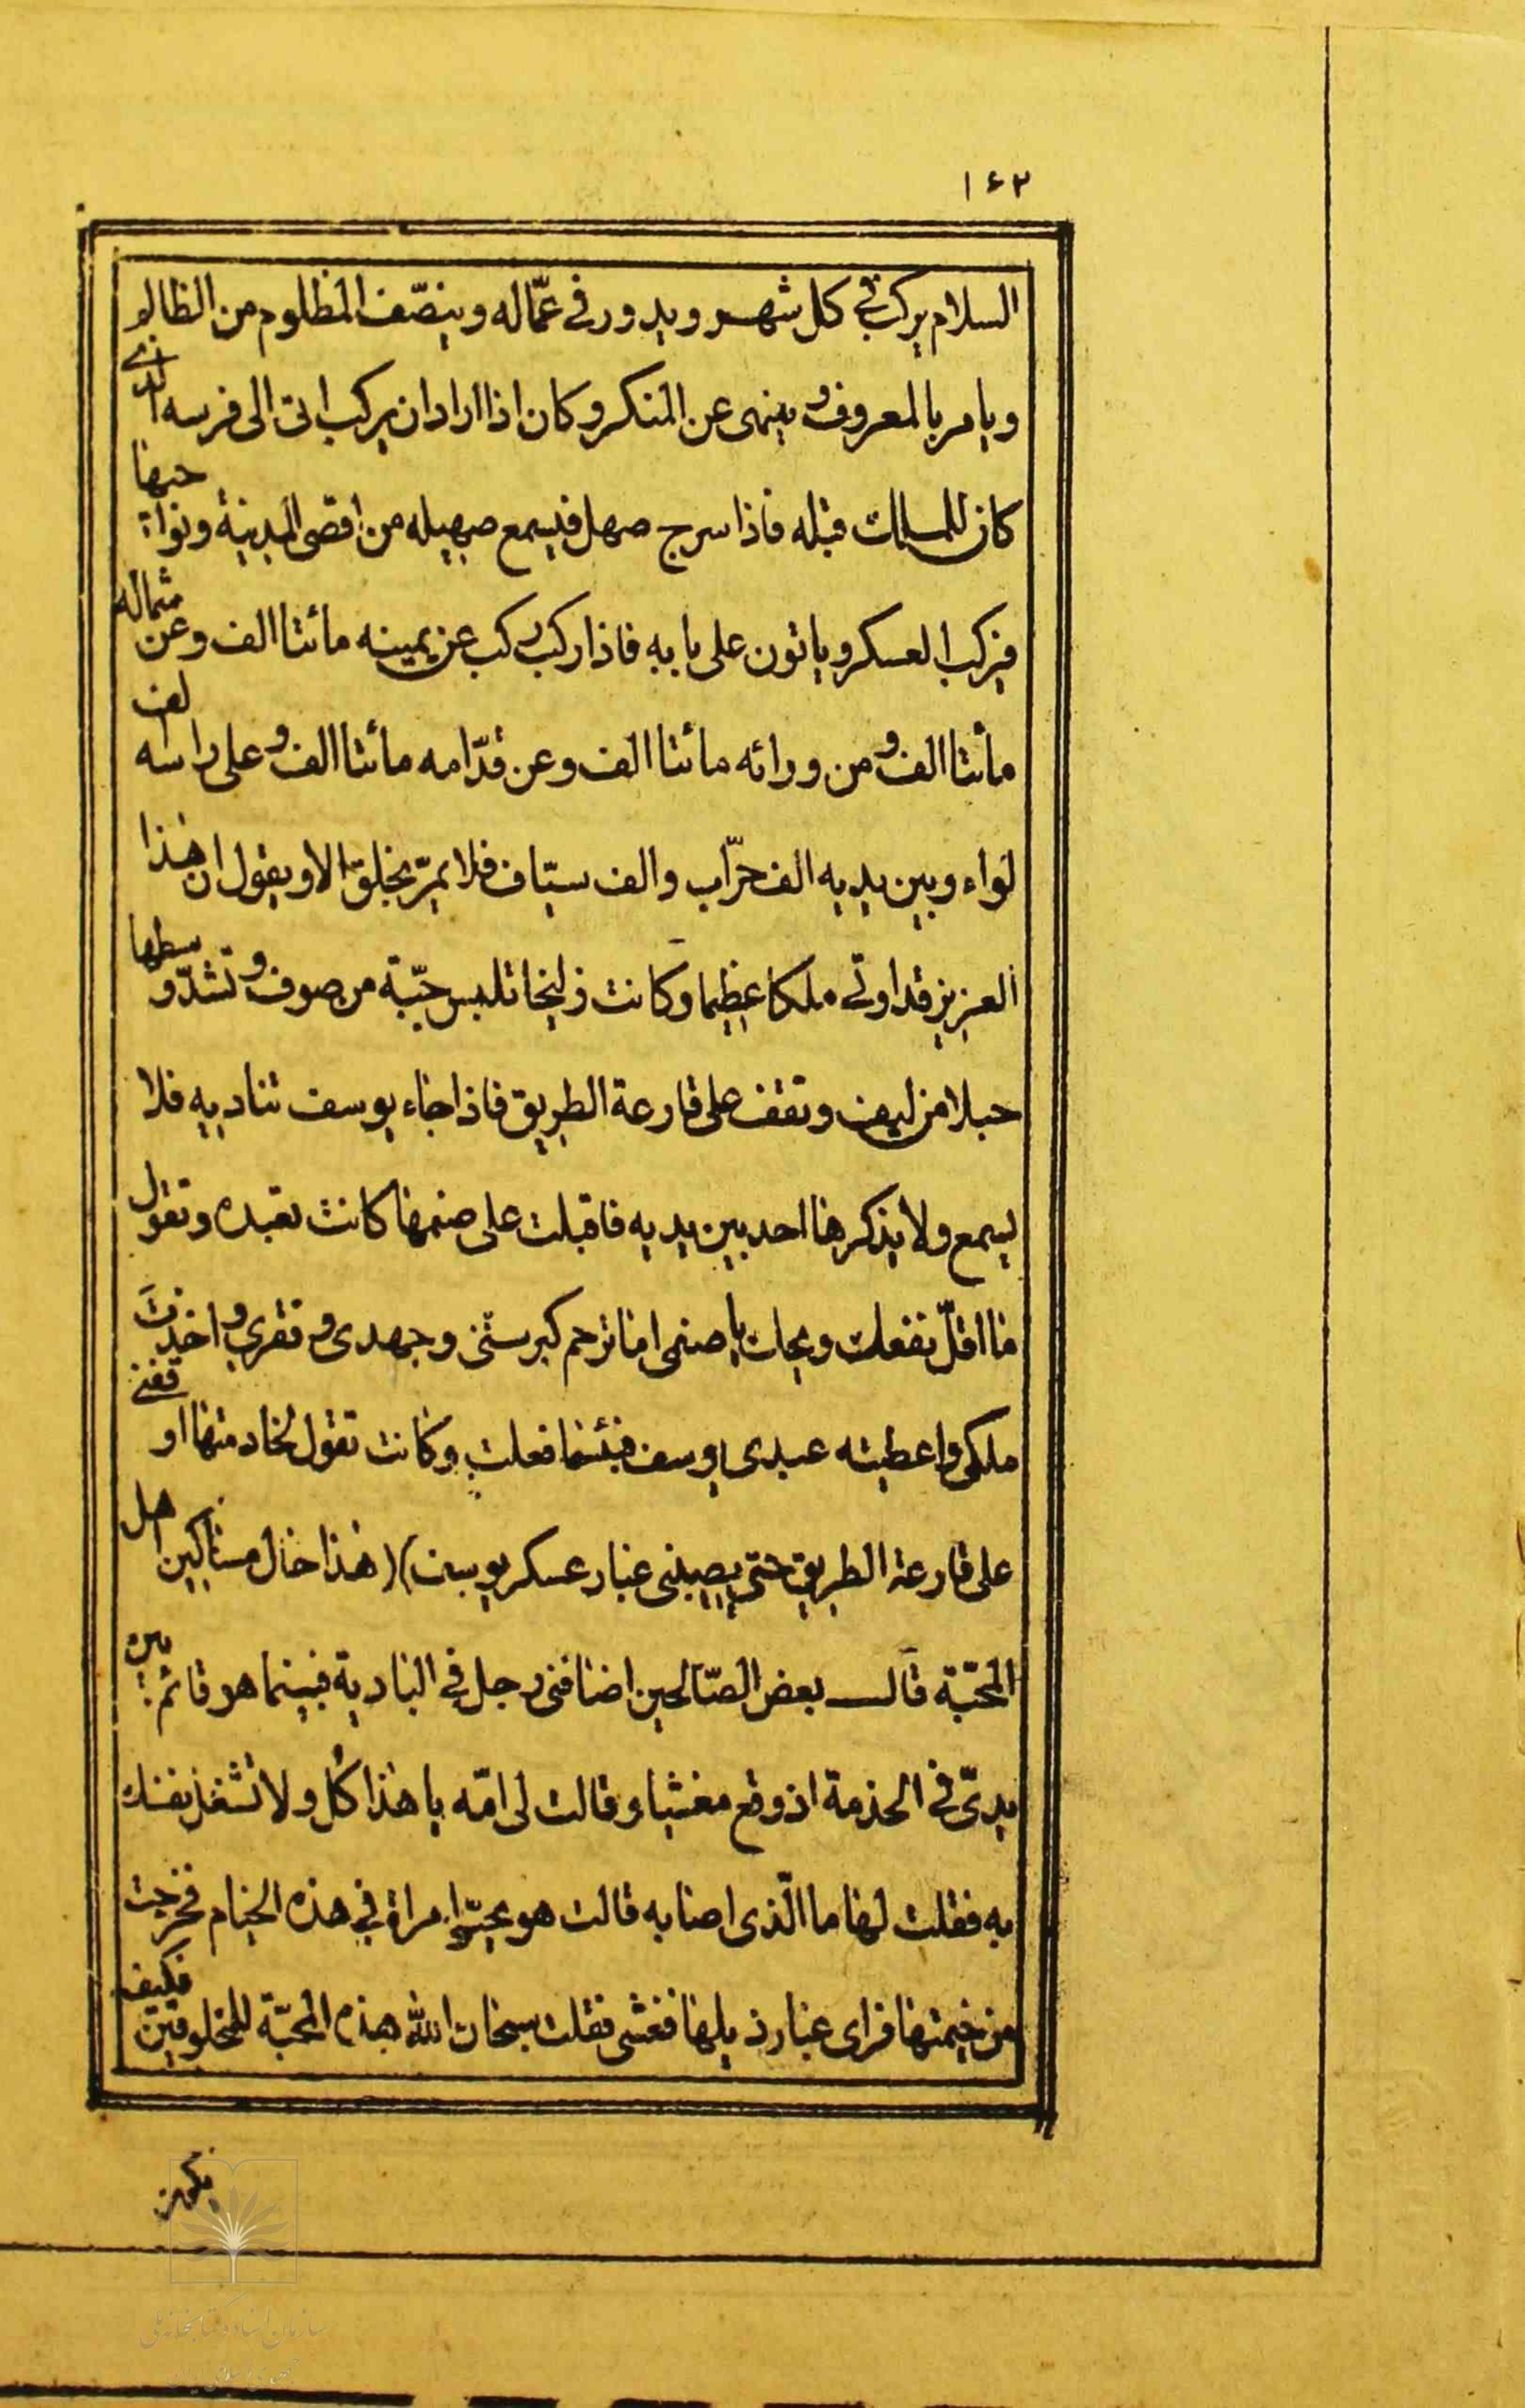 ۱۶۲
السلام يركب في كل شهر و يدور في عمّاله و ينصّف المظلوم من الظالم
و يامر بالمعروف و ينهى عن المنكر و كان اذا اراد ان يركب اتى الى فرسه الذي
كان للملك قبله فاذا سرج صهل فيسمع صهيله من اقصى المدينة و نواحيها
فيركب العسكر و ياتون على بابه فاذا ركب ركب عن يمينه مائتا الف و عن شماله
مائتا الف و من ورائه مائتا الف و عن قدّامه مائتا الف و على راسه الف
لواء و بين يديه الف حرّاب و الف سيّاف فلا يمرّ بخلق الا و يقول ان هذا
العزيز قد اوتي ملكا عظيما و كانت زليخا تلبس جبّة من صوف و تشدّ وسطها
حبلا من ليف و تقف على قارعة الطريق فاذا جاء يوسف تناديه فلا
يسمع و لا يذكرها احد بين يديه فاقبلت على صنمها كانت تعبده و تقول
ما اقلّ نفعك ويحك يا صنمي اما ترحم كبر سنّي و جهدي و فقري و اخذت
ملكي و اعطيته عبدي يوسف فبئسما فعلت و كانت تقول لخادمتها اوقفني
على قارعة الطريق حتى يصيبني غبار عسكر يوسف) (هذا حال مساكين اهل
المحبّة قال بعض الصّالحين اضافني رجل في البادية فبينما هو قائم بين
يديّ في الخدمة اذ وقع مغشيا و قالت لي امّه يا هذا كل و لا تشغل نفسك
به فقلت لها ما الّذي اصابه قالت هو يحبّ امراة في هذه الخيام فخرجت
من خيمتها فراى غبار ذيلها فغشى فقلت سبحان الله هذه المحبّة للمخلوقين فكيف
يكون
سازمان اسناد و کتابخانه ملی
جمهوری اسلامی ایران